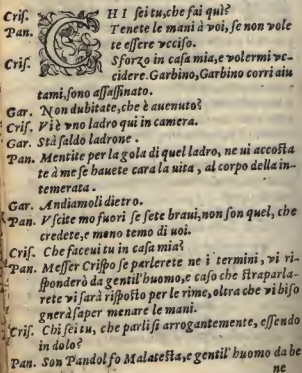 Cris. CHI sei tu, che fai quì?
Pan. Tenete le mani à voi, se non vole
te essere vcciso.
Cris. Sforzo in casa mia, e volermi vc-
cidere. Garbino, Garbino corri aiu
tami, sono assassinato.
Gar. Non dubitate, che è auenuto?
Cris. Vi è vno ladro qui in camera.
Gar. Stà saldo ladrone.
Pan. Mentite per la gola di quel ladro, ne ui accosta
te à me se hauete cara la uita, al corpo della in-
temerata.
Gar. Andiamoli dietro.
Pan. Vscite mo fuori se sete braui, non son quel, che
credete, e mano temo di uoi.
Cris. Che faceui tu in casa mia?
Pan. Messer Crispo se parlerete ne i termini, vi ri-
sponderò da gentil'huomo, e caso che straparla-
rete vi sarà risposto per le rime, oltra che vi biso
gnerà saper menare le mani.
Cris. Chi sei tu, che parli sì arrogantemente, essendo
in dolo?
Pan. Son Pandolfo Malatesta, e gentil'huomo da be
ne